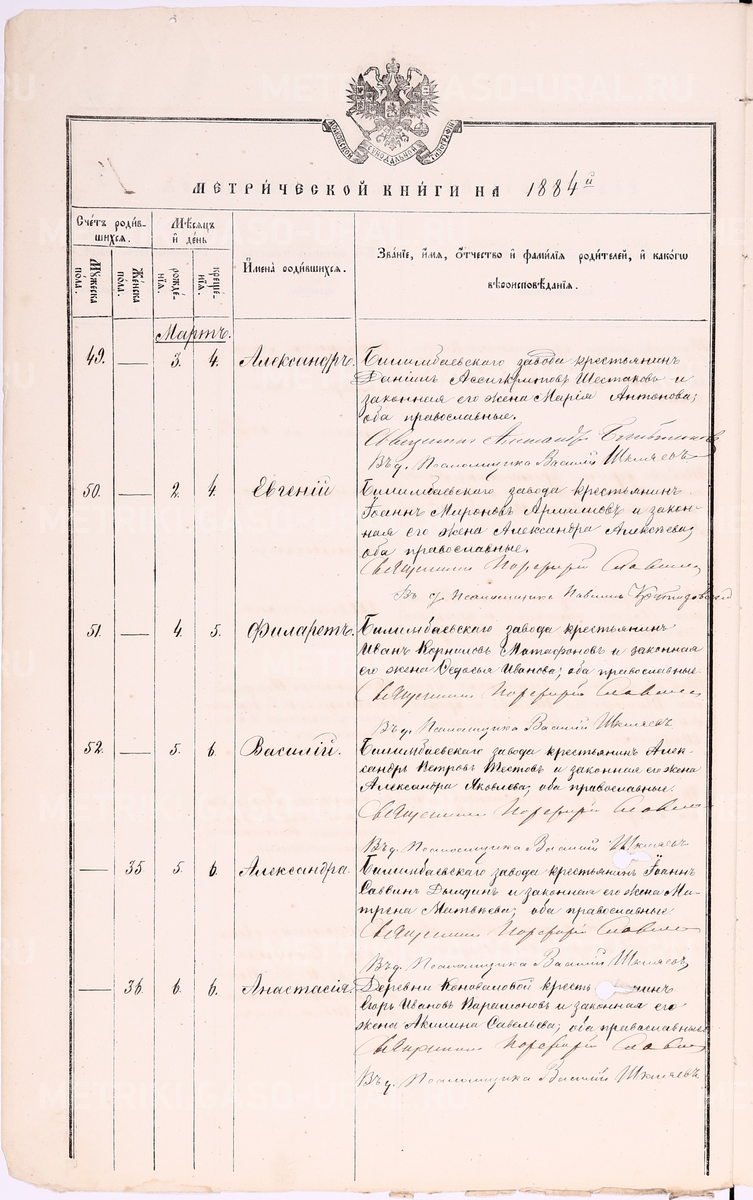 МОСКОВСКОЙ СѴНОДАЛЬНОЙ ТИПОГРАФІИ
МЕТРИ́ЧЕСКОЙ КНИ́ГИ НА 1884й
Сче́тъ роди́в-
шихся.
Мѣсяцъ
и́ де́нь
И́мена̀ роди́вшихся.
Зва́ніе, и́мя, о́тчество и́ фами́лія роди́телей, и́ како́гѡ
вѣроисповѣ́данія.
Му́жеска
по́ла.
Же́нска
по́ла.
рожде́-
нія.
креще́-
нія.
Мартъ.
49. — 3. 4. Александръ. Билимбаевскаго завода крестьянинъ
Даніилъ Шестаковъ и
законная его жена Марія Антонова;
оба православные.
Священникъ Александръ
Въ д. Псаломщика Василій Шкляевъ
50. — 2. 4. Евгеній Билимбаевскаго завода крестьянинъ
Іоаннъ Мироновъ и закон-
ная его жена Александра Алексѣева;
оба православные.
Священникъ Порфирій Славнинъ
Въ д. Псаломщика
51. — 4. 5. Филаретъ. Билимбаевскаго завода крестьянинъ
Иванъ Корниловъ Матафоновъ и законная
его жена Ѳедосья Иванова; оба православные.
Священникъ Порфирій Славнинъ
Въ д. Псаломщика Василій Шкляевъ
52. — 5. 6. Василій. Билимбаевскаго завода крестьянинъ Алек-
сандръ Петровъ Шестовъ и законная его жена
Александра Яковлева; оба православные.
Священникъ Порфирій Славнинъ
Въ д. Псаломщика Василій Шкляевъ
— 35 5. 6. Александра. Билимбаевскаго завода крестьянинъ Іоаннъ
Саввинъ Дылдинъ и законная его жена Ма-
трена Матвѣева; оба православные
Священникъ Порфирій Славнинъ
Въ д. Псаломщика Василій Шкляевъ
— 36. 6. 6. Анастасія. Деревни Коноваловой кресть нинъ
Егоръ Ивановъ Варамоновъ и законная его
жена Акилина Савельева; оба православные
Священникъ Порфирій Славнинъ
Въ д. Псаломщика Василій Шкляевъ